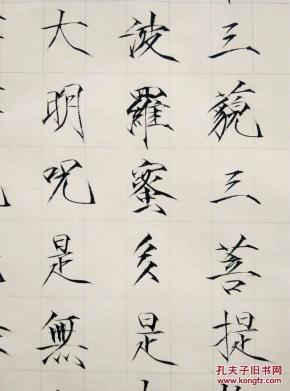 三藐三菩提
波羅蜜多是
大明咒是無
孔夫子旧书网